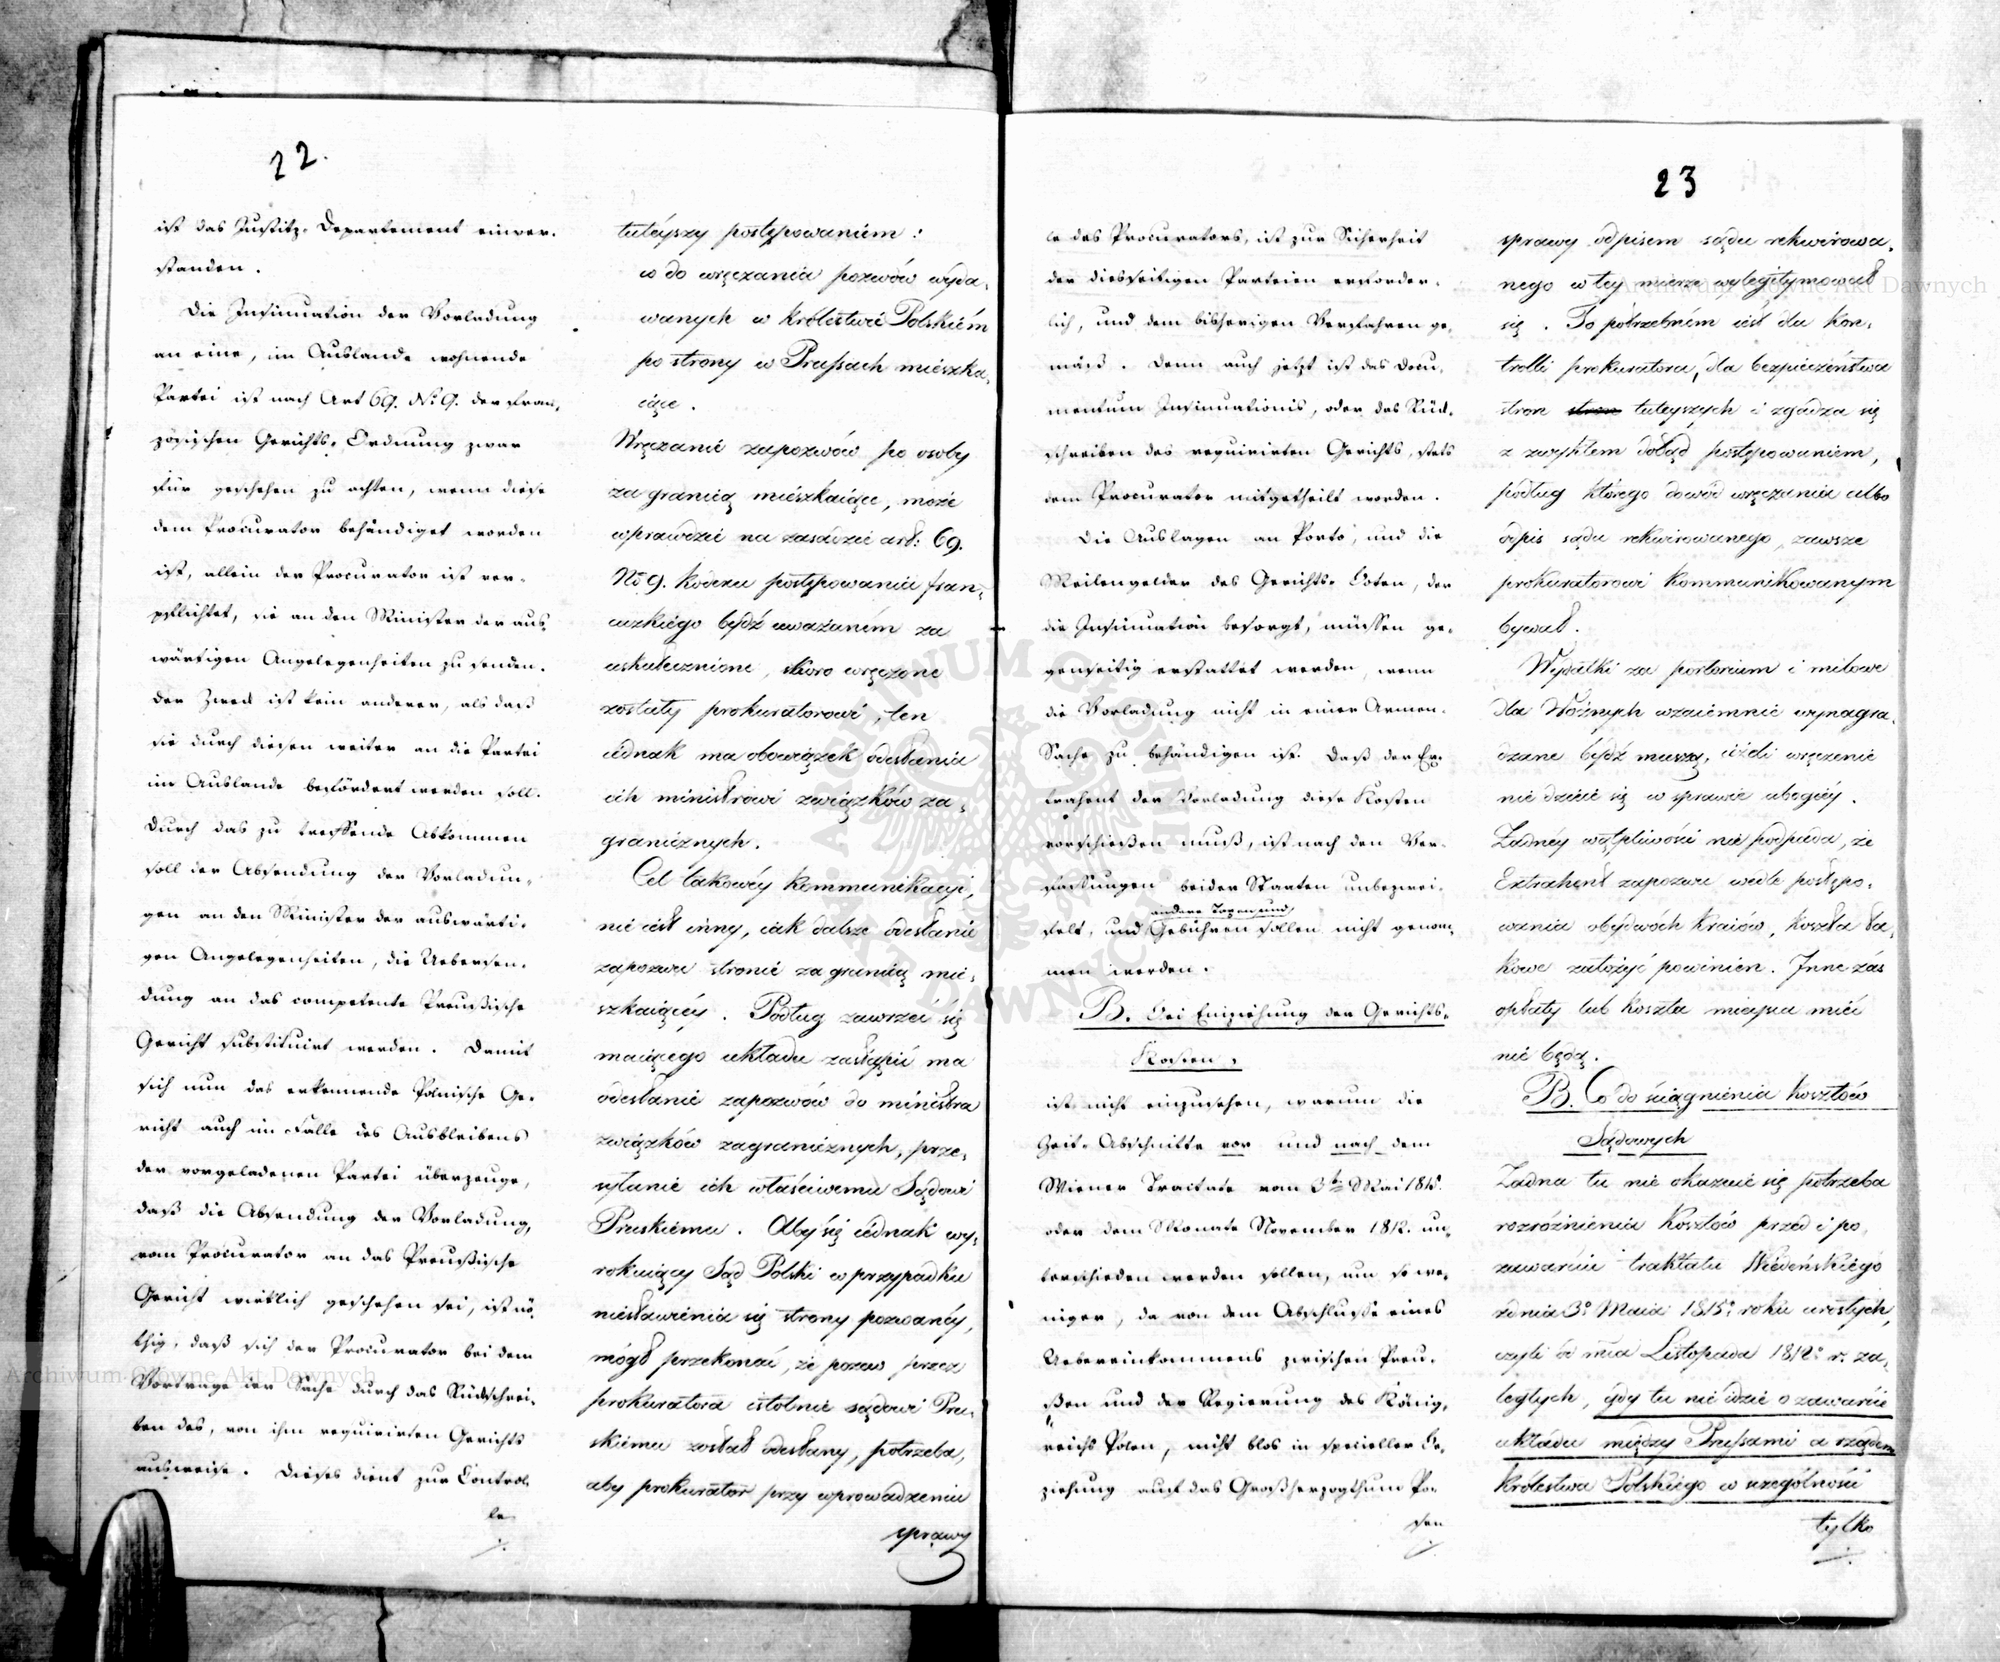 22.
ist das Justitz-Departement einver-
standen.
Die Insinuation der Vorladung
an eine, im Auslande wohnende
Partei ist nach Art 69. No 9. der fran-
zösischen Gerichts-Ordnung zwar
für geschehen zu achten, wenn diese
dem Procurator behändiget worden
ist, allein der Procurator ist ver-
pflichtet, sie an den Minister der aus-
wärtigen Angelegenheiten zu senden.
Der Zweck ist kein anderer, als daß
sie durch diesen weiter an die Partei
im Auslande befördert werden soll.
Durch das zu treffende Abkommen
soll der Absendung der Vorladun-
gen an den Minister der auswärti-
gen Angelegenheiten, die Uebersen-
dung an das competente Preußische
Gericht substituirt werden. Damit
sich nun das erkennende Polnische Ge-
richt auch im Falle des Ausbleibens
der vorgeladenen Partei überzeuge,
daß die Absendung der Vorladung,
vom Procurator an das Preußische
Gericht wirklich geschehen sei, ist nö-
thig, daß sich der Procurator bei dem
Vortrage der Sache durch das Rückschrei-
ben des, von ihm requirirten Gerichts
ausweise. Dieses dient zur Control-
le
tuteyszy postępowaniem:
co do wręczania pozwów wyda-
wanych w królestwie Polskiém
po strony w Prussach mieszka-
iące.
Wręczanie zapozwów po osoby
za granicą mieszkaiące, może
wprawdzie na zasadzie art: 69.
No 9. kodexu postępowania fran-
cuzkiégo bydź uważaném za
uskutecznione, skoro wręczone
zostały prokuratorowi, ten
iednak ma obowiązek odesłania
ich ministrowi związków za-
granicznych.
Cel takowéy kommunikacyi,
nie iest inny, iak dalsze odesłanie
zapozwu stronie za granicą mie-
szkaiącéy. Podług zawrzeć się
maiącego układu zastąpić ma
odesłanie zapozwów do ministra
związków zagranicznych, prze-
syłanie ich właściwemu Sądowi
Pruskiému. Aby się iednak wy-
rokuiący Sąd Polski w przypadku
niestawienia się strony pozwanéy,
mógł przekonać, że pozew przez
prokuratora istotnie sądowi Pru-
skiému został odesłany, potrzeba,
aby prokurator przy wprowadzeniu
sprawy
23
le des Procurators, ist zur Sicherheit
der diesseitigen Parteien erforder-
lich, und dem bisherigen Verfahren ge-
mäß. Denn auch jetzt ist das Docu-
mentum Insinuationis, oder das Rück-
schreiben des requirirten Gerichts, stets
dem Procurator mitgetheilt worden.
Die Auslagen an Porto, und die
Meilengelder des Gerichts-Boten, der
die Insinuation besorgt, müssen ge-
genseitig erstattet werden, wenn
die Vorladung nicht in einer Armen-
Sache zu behändigen ist. Daß der Ex-
trahent der Vorladung diese Kosten
vorschießen muß, ist nach den Ver-
fassungen beider Staaten unbezwei-
andere Taxen und
felt, und Gebühren sollen nicht genom-
men werden.
B. Bei Einziehung der Gerichts-
Kosten,
ist nicht einzusehen, warum die
Zeit-Abschnitte vor und nach dem
Wiener Traitate vom 3ten Mai 1815.
oder dem Monate November 1812. un-
terschieden werden sollen, um so we-
niger, da von dem Abschlusse eines
Uebereinkommens zwischen Preu-
ßen und der Regierung des König-
reichs Polen, nicht blos in specieller Be-
ziehung auf das Großherzogthum Po-
sen
sprawy odpisem sądu rekwirowa-
nego w tey mierze wylegitymował
się. To potrzebném iest dla kon-
trolli prokuratora, dla bezpieczeństwa
stron stron tuteyszych i zgadza się
z zwykłem dotąd postępowaniem,
podług którego dowód wręczania albo
odpis sądu rekwirowanego, zawsze
prokuratorowi kommunikowanym
bywał.
Wydatki za portorium i milowe
dla Woźnych wzaiémnie wynagra-
dzane bydź muszą, ieżeli wręczenie
nie dzieie się w sprawie ubogiéy.
Żadnéy wątpliwości nie podpada, że
Extrahent zapozwu wedle postępo-
wania obydwóch kraiów, koszta ta-
kowe założyć powinien. Inne zaś
opłaty lub koszta mieysca mieć
nie będą.
B. Co do ściągnienia kosztów
Sądowych
Żadna tu nie okazuie się potrzeba
rozróżnienia kosztów przed i po
zawarciu traktatu Wiedeńskiégo
z dnia 3o Maia 1815o roku urosłych,
czyli od mca Listopada 1812o r. za-
ległych, gdy tu nie idzie o zawarcie
układu między Prussami a rządem
Królestwa Polskiégo w szególności
tylko
Archiwum Główne Akt Dawnych
Archiwum Główne Akt Dawnych
ARCHIWUM GŁÓWNE AKT DAWNYCH